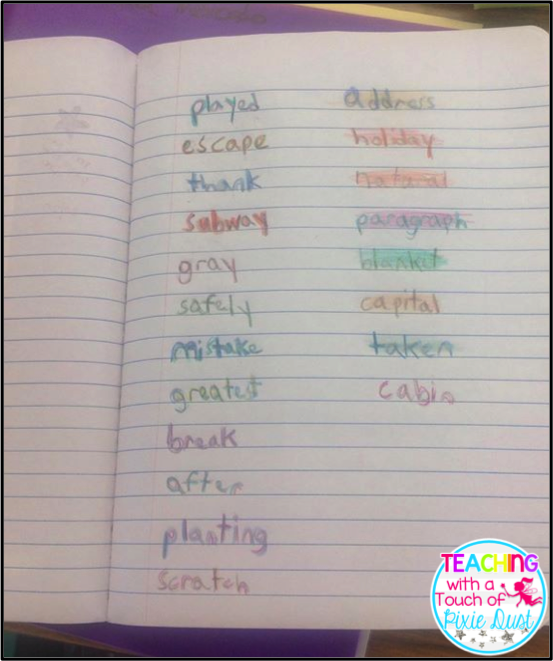 played
escape
thank
subway
gray
safely
mistake
greatest
break
after
planting
scratch
address
holiday
natural
paragraph
blanket
capital
taken
cabin
TEACHING
with a
Touch of
Pixie Dust